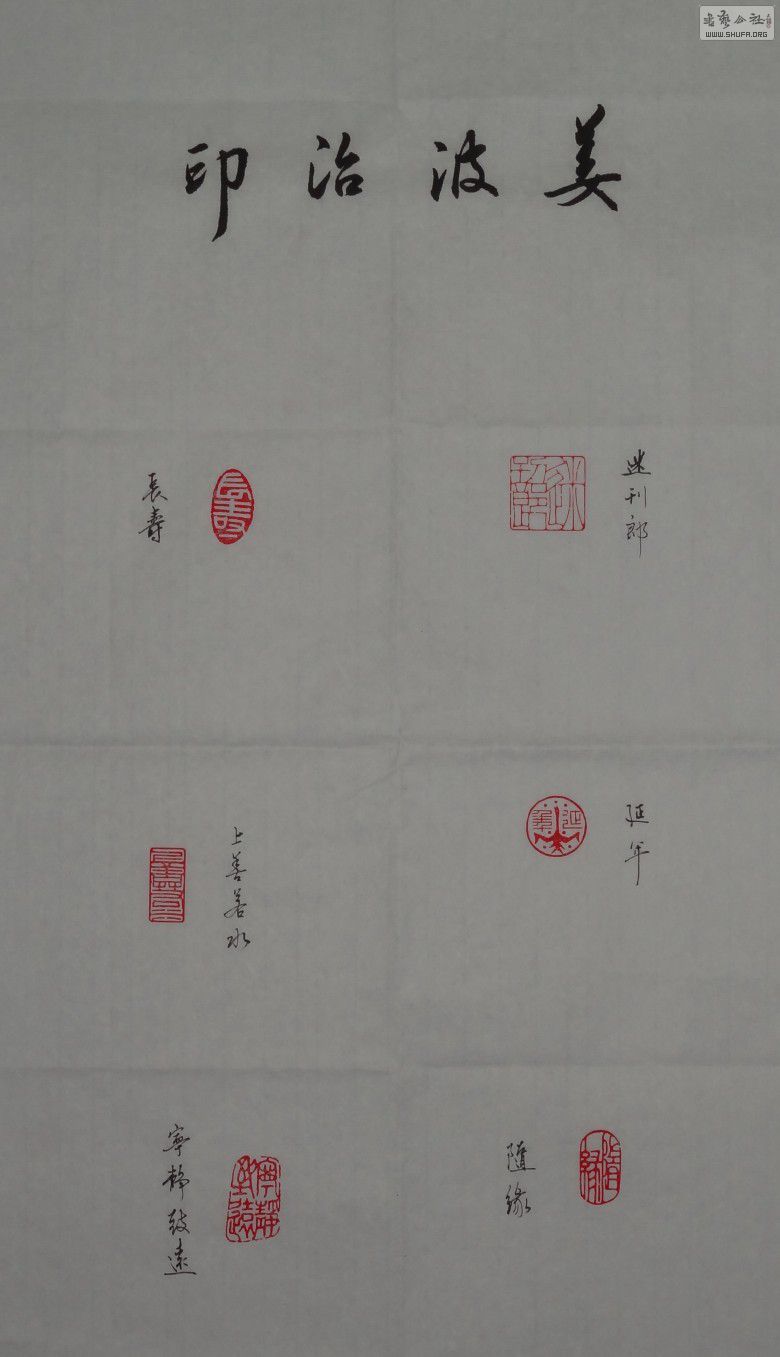 书艺公社
WWW.SHUFA.ORG
姜波治印
迷刊郎
長壽
延年
上善若水
隨緣
寧靜致遠